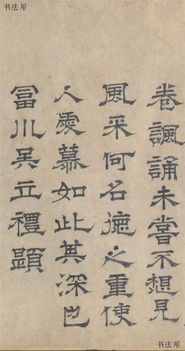 书法屋
卷諷誦未嘗不想見
風采何名德之重使
人愛慕如此其深也
冨川吴立禮題
书法屋